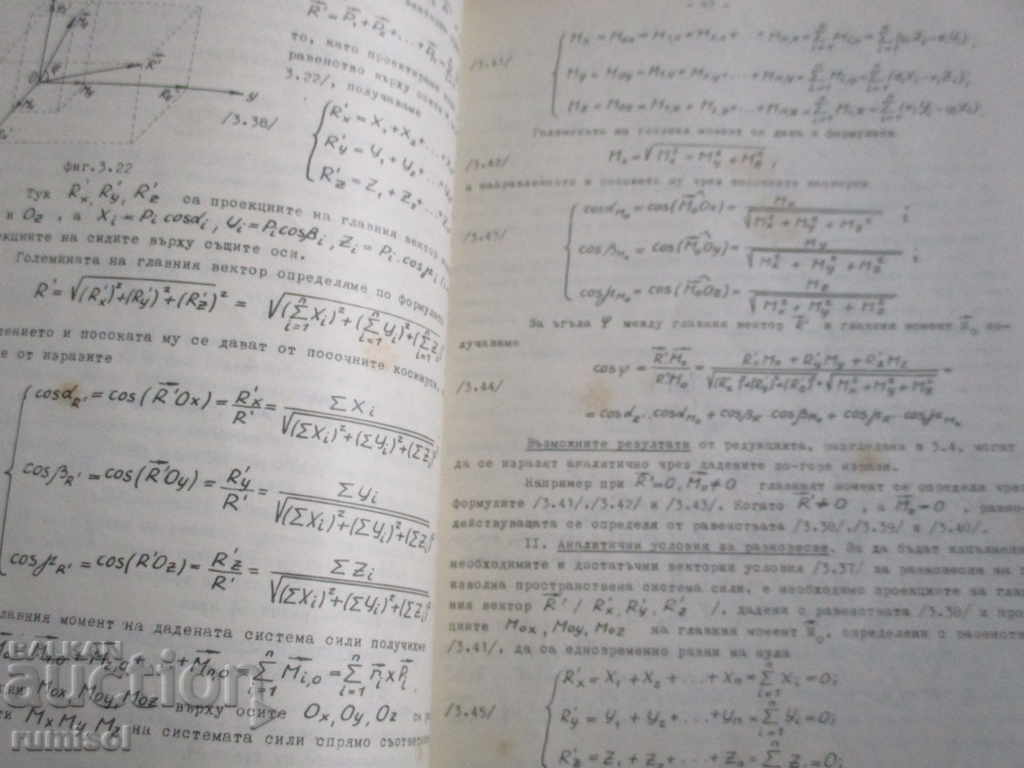 y
/3.38/
фиг.3.22
R̄' = P̄₁ + P̄₂ + ... + P̄
то, като проектираме
равенство върху осите
3.22/, получаваме
R'x = X₁ + X₂ +
R'y = Y₁ + Y₂ +
R'z = Z₁ + Z₂ +
тук R'x, R'y, R'z са проекциите на главния вектор
и Oz , а Xi = Pi cosαi, Yi = Pi cosβi, Zi = Pi cosμi
екциите на силите върху същите оси.
Големината на главния вектор определяме по формулата
R' = √(R'x)²+(R'y)²+(R'z)² = √(Σ Xi)²+(Σ Yi)²+(Σ Zi)
лението и посоката му се дават от посочните косинуси,
е от изразите
cosαR' = cos(R̄'Ox) = R'x/R' = ΣXi/√(ΣXi)²+(ΣYi)²+(ΣZi)²
cosβR' = cos(R̄'Oy) = R'y/R' = ΣYi/√(ΣXi)²+(ΣYi)²+(ΣZi)²
cosμR' = cos(R'Oz) = R'z/R' = ΣZi/√(ΣXi)²+(ΣYi)²+(ΣZi)²
лавния момент на дадената система сили получихме
M̄n,o = Σ M̄i,o = Σ r̄i x P̄i
Mox, Moy, Moz върху осите Ox, Oy, Oz
Mx My Mz на системата сили спрямо съответ
/3.41/
Големината на главния момент се дава с формулата
/3.42/
Mo = √Mx² + My² + Mz² ,
а направлението и посоката му чрез посочните косинуси
/3.43/
cosαMo = cos(M̄oOx) = Mx/√Mx² + My² + Mz² ;
cosβMo = cos(M̄oOy) = My/√Mx² + My² + Mz² ;
cosμMo = cos(M̄oOz) = Mz/√Mx² + My² + Mz²
За ъгъла ψ между главния вектор R̄' и главния момент M̄o по-
лучаваме
/3.44/
cosψ = R̄'M̄o/R'Mo = R'xMx + R'yMy + R'zMz/√(R'x)²+(R'y)²+(R'z)² √Mx² + My² + Mz² =
= cosαR'.cosαMo + cosβR' cosβMo + cosμR' cosμMo
Възможните резултати от редукцията, разгледана в 3.4, могат
да се изразят аналитично чрез дадените по-горе изрази.
Например при R̄'=0, M̄o≠0 главният момент се определя чрез
формулите /3.41/,/3.42/ и /3.43/. Когато R̄'≠0 , а M̄o=0, равно-
действуващата се определя от равенствата /3.38/,/3.39/ и /3.40/.
II. Аналитични условия за равновесие. За да бъдат изпълнени
необходимите и достатъчни векторни условия /3.37/ за равновесие на
изволна пространствена система сили, е необходимо проекциите на глав
ния вектор R̄' / R'x, R'y, R'z /, дадени с равенствата /3.38/ и прое
циите Mox, Moy, Moz на главния момент M̄o, определени с равенств
/3.41/, да са едновременно равни на нула
/3.45/
R'x = X₁ + X₂ + ... + Xn = Σ Xi = 0;
R'y = Y₁ + Y₂ + ... + Yn = Σ Yi = 0;
R'z = Z₁ + Z₂ + ... + Zn = Σ Zi = 0;
БАЛКАН
АУКЦИОН
rumisol